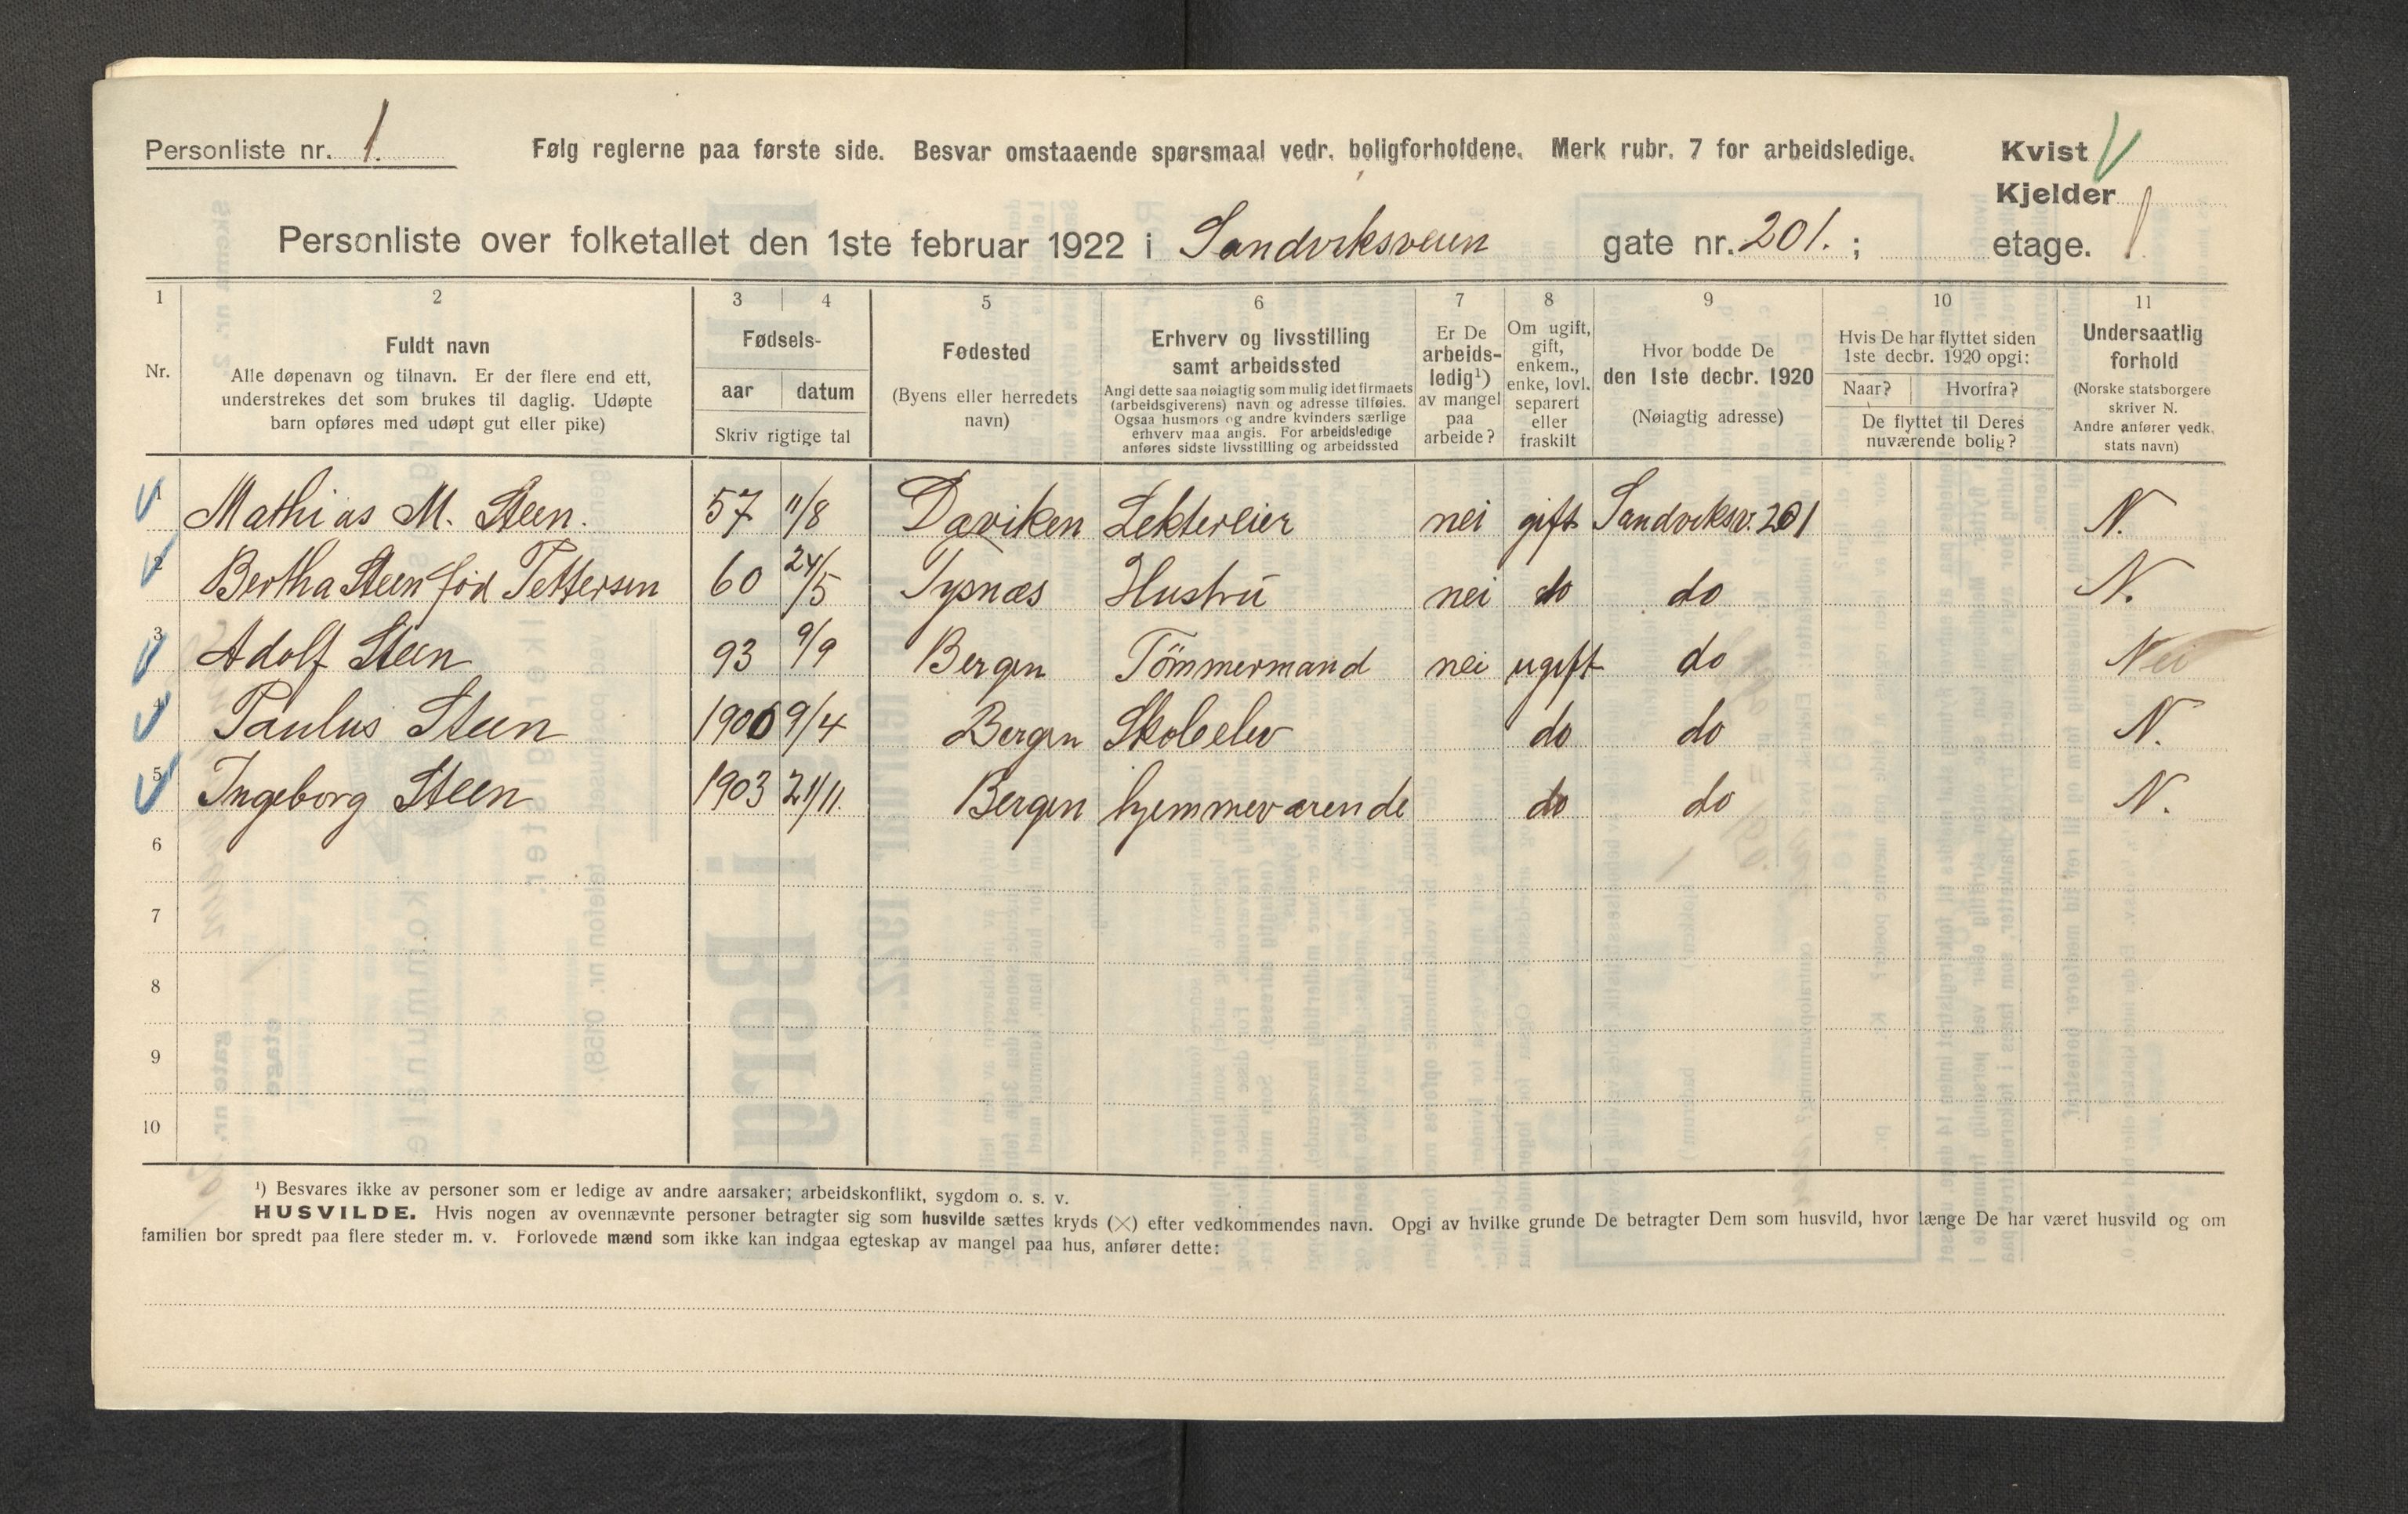 Personliste nr. 1. Følg reglerne paa første side. Besvar omstaaende spørsmaal vedr. boligforholdene. Merk rubr. 7 for arbeidsledige. Kvist
Kjelder
Personliste over folketallet den 1ste februar 1922 i Sandviksveien gate nr. 201. ; etage. 1
1 2 3 4 5 6 7 8 9 10 11
Nr.
Fuldt navn
Alle døpenavn og tilnavn. Er der flere end ett,
understrekes det som brukes til daglig. Udøpte
barn opføres med udøpt gut eller pike)
Fødsels-
aar datum
Skriv rigtige tal
Fødested
(Byens eller herredets
navn)
Erhverv og livsstilling
samt arbeidssted
Angi dette saa nøiagtig som mulig idet firmaets
(arbeidsgiverens) navn og adresse tilføies.
Ogsaa husmors og andre kvinders særlige
erhverv maa angis. For arbeidsledige
anføres sidste livsstilling og arbeidssted
Er De
arbeids-
ledig¹)
av mangel
paa
arbeide?
Om ugift,
gift,
enkem.,
enke, lovl.
separert
eller
fraskilt
Hvor bodde De
den 1ste decbr. 1920
(Nøiagtig adresse)
Hvis De har flyttet siden
1ste decbr. 1920 opgi:
Naar? Hvorfra?
De flyttet til Deres
nuværende bolig?
Undersaatlig
forhold
(Norske statsborgere
skriver N.
Andre anfører vedk.
stats navn)
1 Mathias M. Steen. 57 11/8 Daviken Lektereier nei gift Sandviksv. 201 N.
2 Bertha Steen född Pettersen 60 24/5 Tysnæs Hustru nei do do N.
3 Adolf Steen 93 9/9 Bergen Tömmermand nei ugift do Nei
4 Paulus Steen 1906 9/4 Bergen Skoleelev do do N.
5 Ingeborg Steen 1903 21/11. Bergen hjemmeværende do do N.
6
7
8
9
10
¹) Besvares ikke av personer som er ledige av andre aarsaker; arbeidskonflikt, sygdom o. s. v.
HUSVILDE. Hvis nogen av ovennævnte personer betragter sig som husvilde sættes kryds (×) efter vedkommendes navn. Opgi av hvilke grunde De betragter Dem som husvild, hvor længe De har været husvild og om
familien bor spredt paa flere steder m. v. Forlovede mænd som ikke kan indgaa egteskap av mangel paa hus, anfører dette: